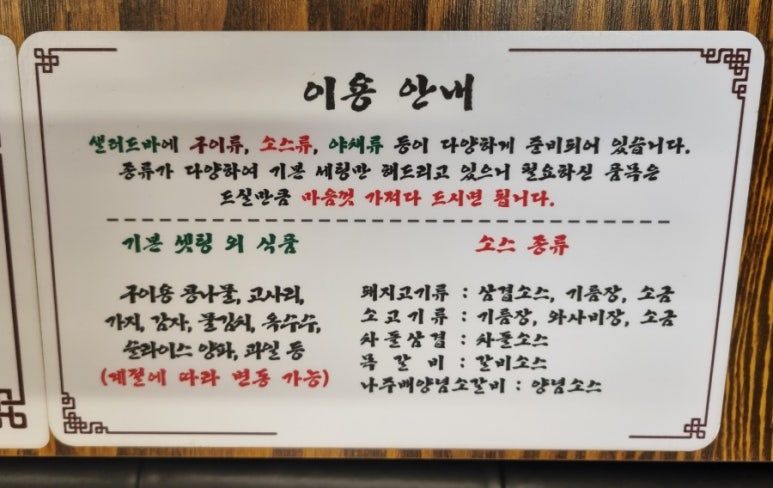 이용 안내
샐러드바에 구이류, 소스류, 야채류 등이 다양하게 준비되어 있습니다.
종류가 다양하여 기본 세팅만 해드리고 있으니 필요하신 품목은
드실만큼 마음껏 가져다 드시면 됩니다.
기본 셋팅 외 식품
구이용 콩나물, 고사리,
가지, 감자, 물김치, 옥수수,
슬라이스 양파, 과일 등
(계절에 따라 변동 가능)
소스 종류
돼지고기류 : 삼겹소스, 기름장, 소금
소고기류 : 기름장, 와사비장, 소금
차돌삼겹 : 차돌소스
목갈비 : 갈비소스
나주배양념소갈비 : 양념소스